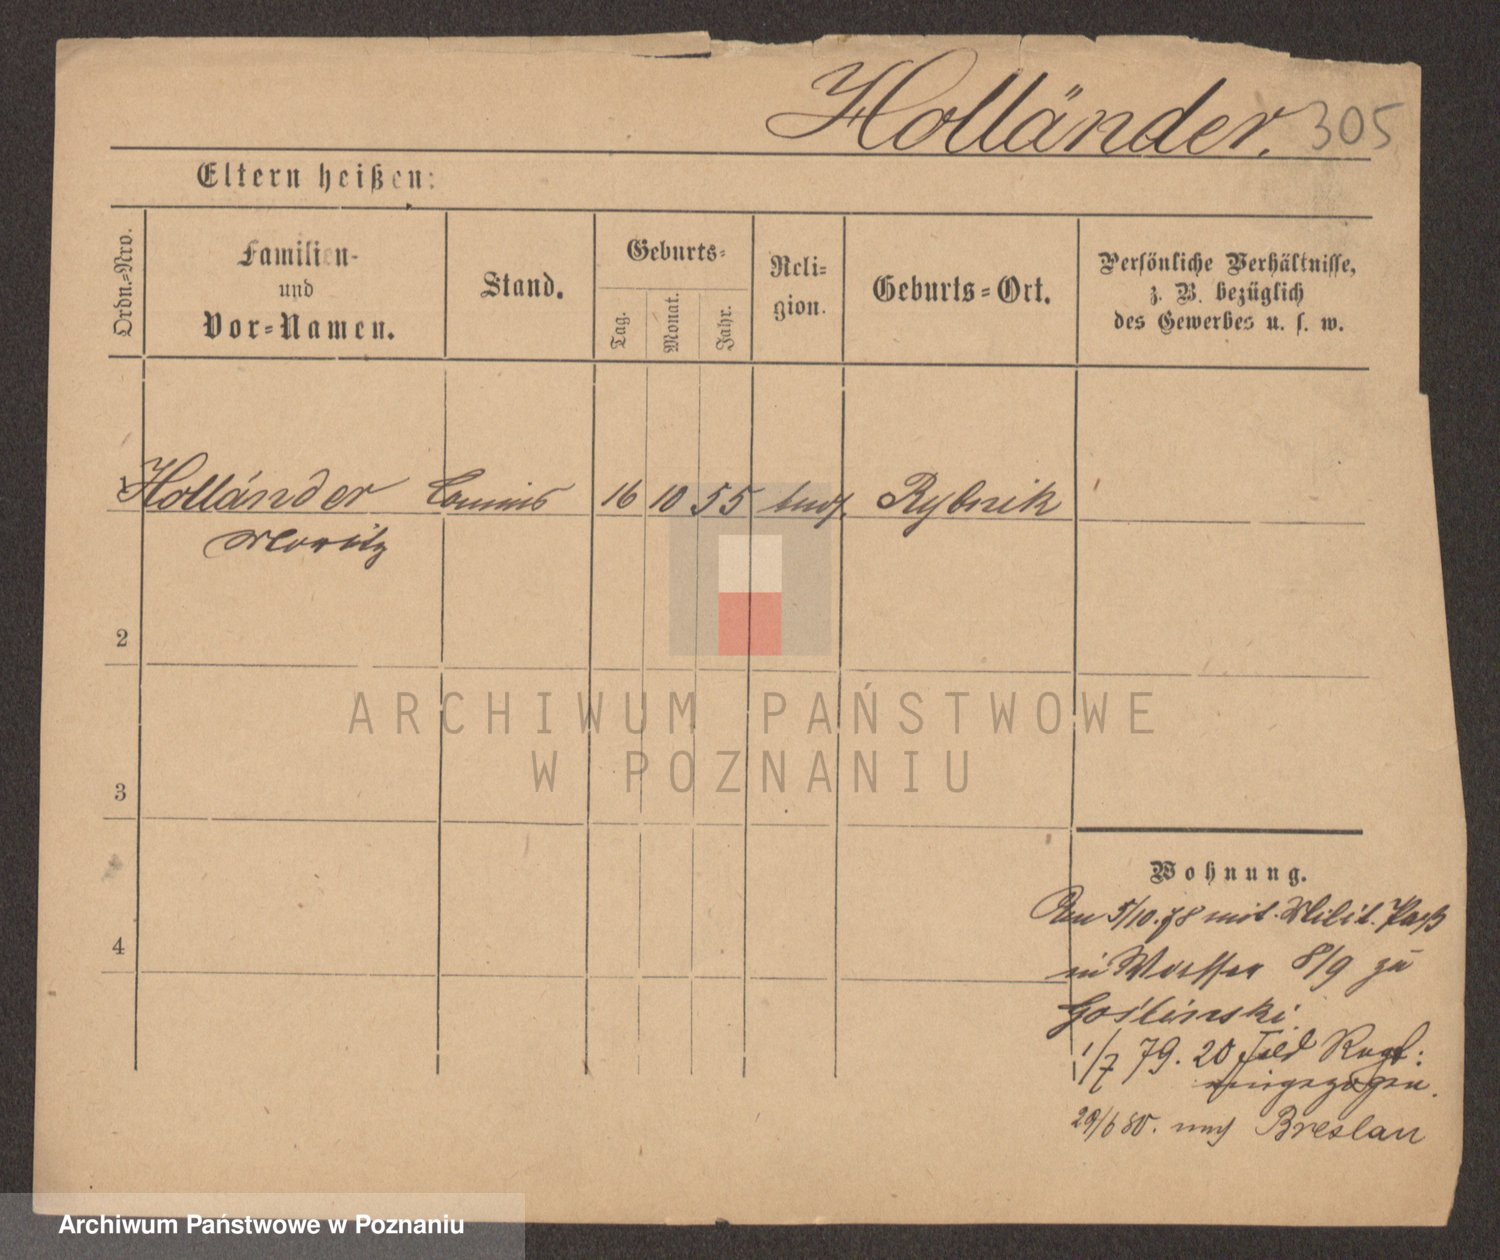 Holländer. 305
Eltern heißen:
Ordn.-Nro.
Familien-
und
Vor-Namen.
Stand.
Geburts-
Tag.
Monat.
Jahr.
Reli-
gion.
Geburts-Ort.
Persönliche Verhältnisse,
z. B. bezüglich
des Gewerbes u. s. w.
1 Holländer Commis 16 10 55 Rybnik
Moritz
2
3
4
Wohnung.
5/10.78 mit. Milit. Paß
8/9 zu
Goślinski.
1/7 79. 20 Feld Regt:
eingezogen.
29/6 80. nach Breslau
ARCHIWUM PAŃSTWOWE
W POZNANIU
Archiwum Państwowe w Poznaniu